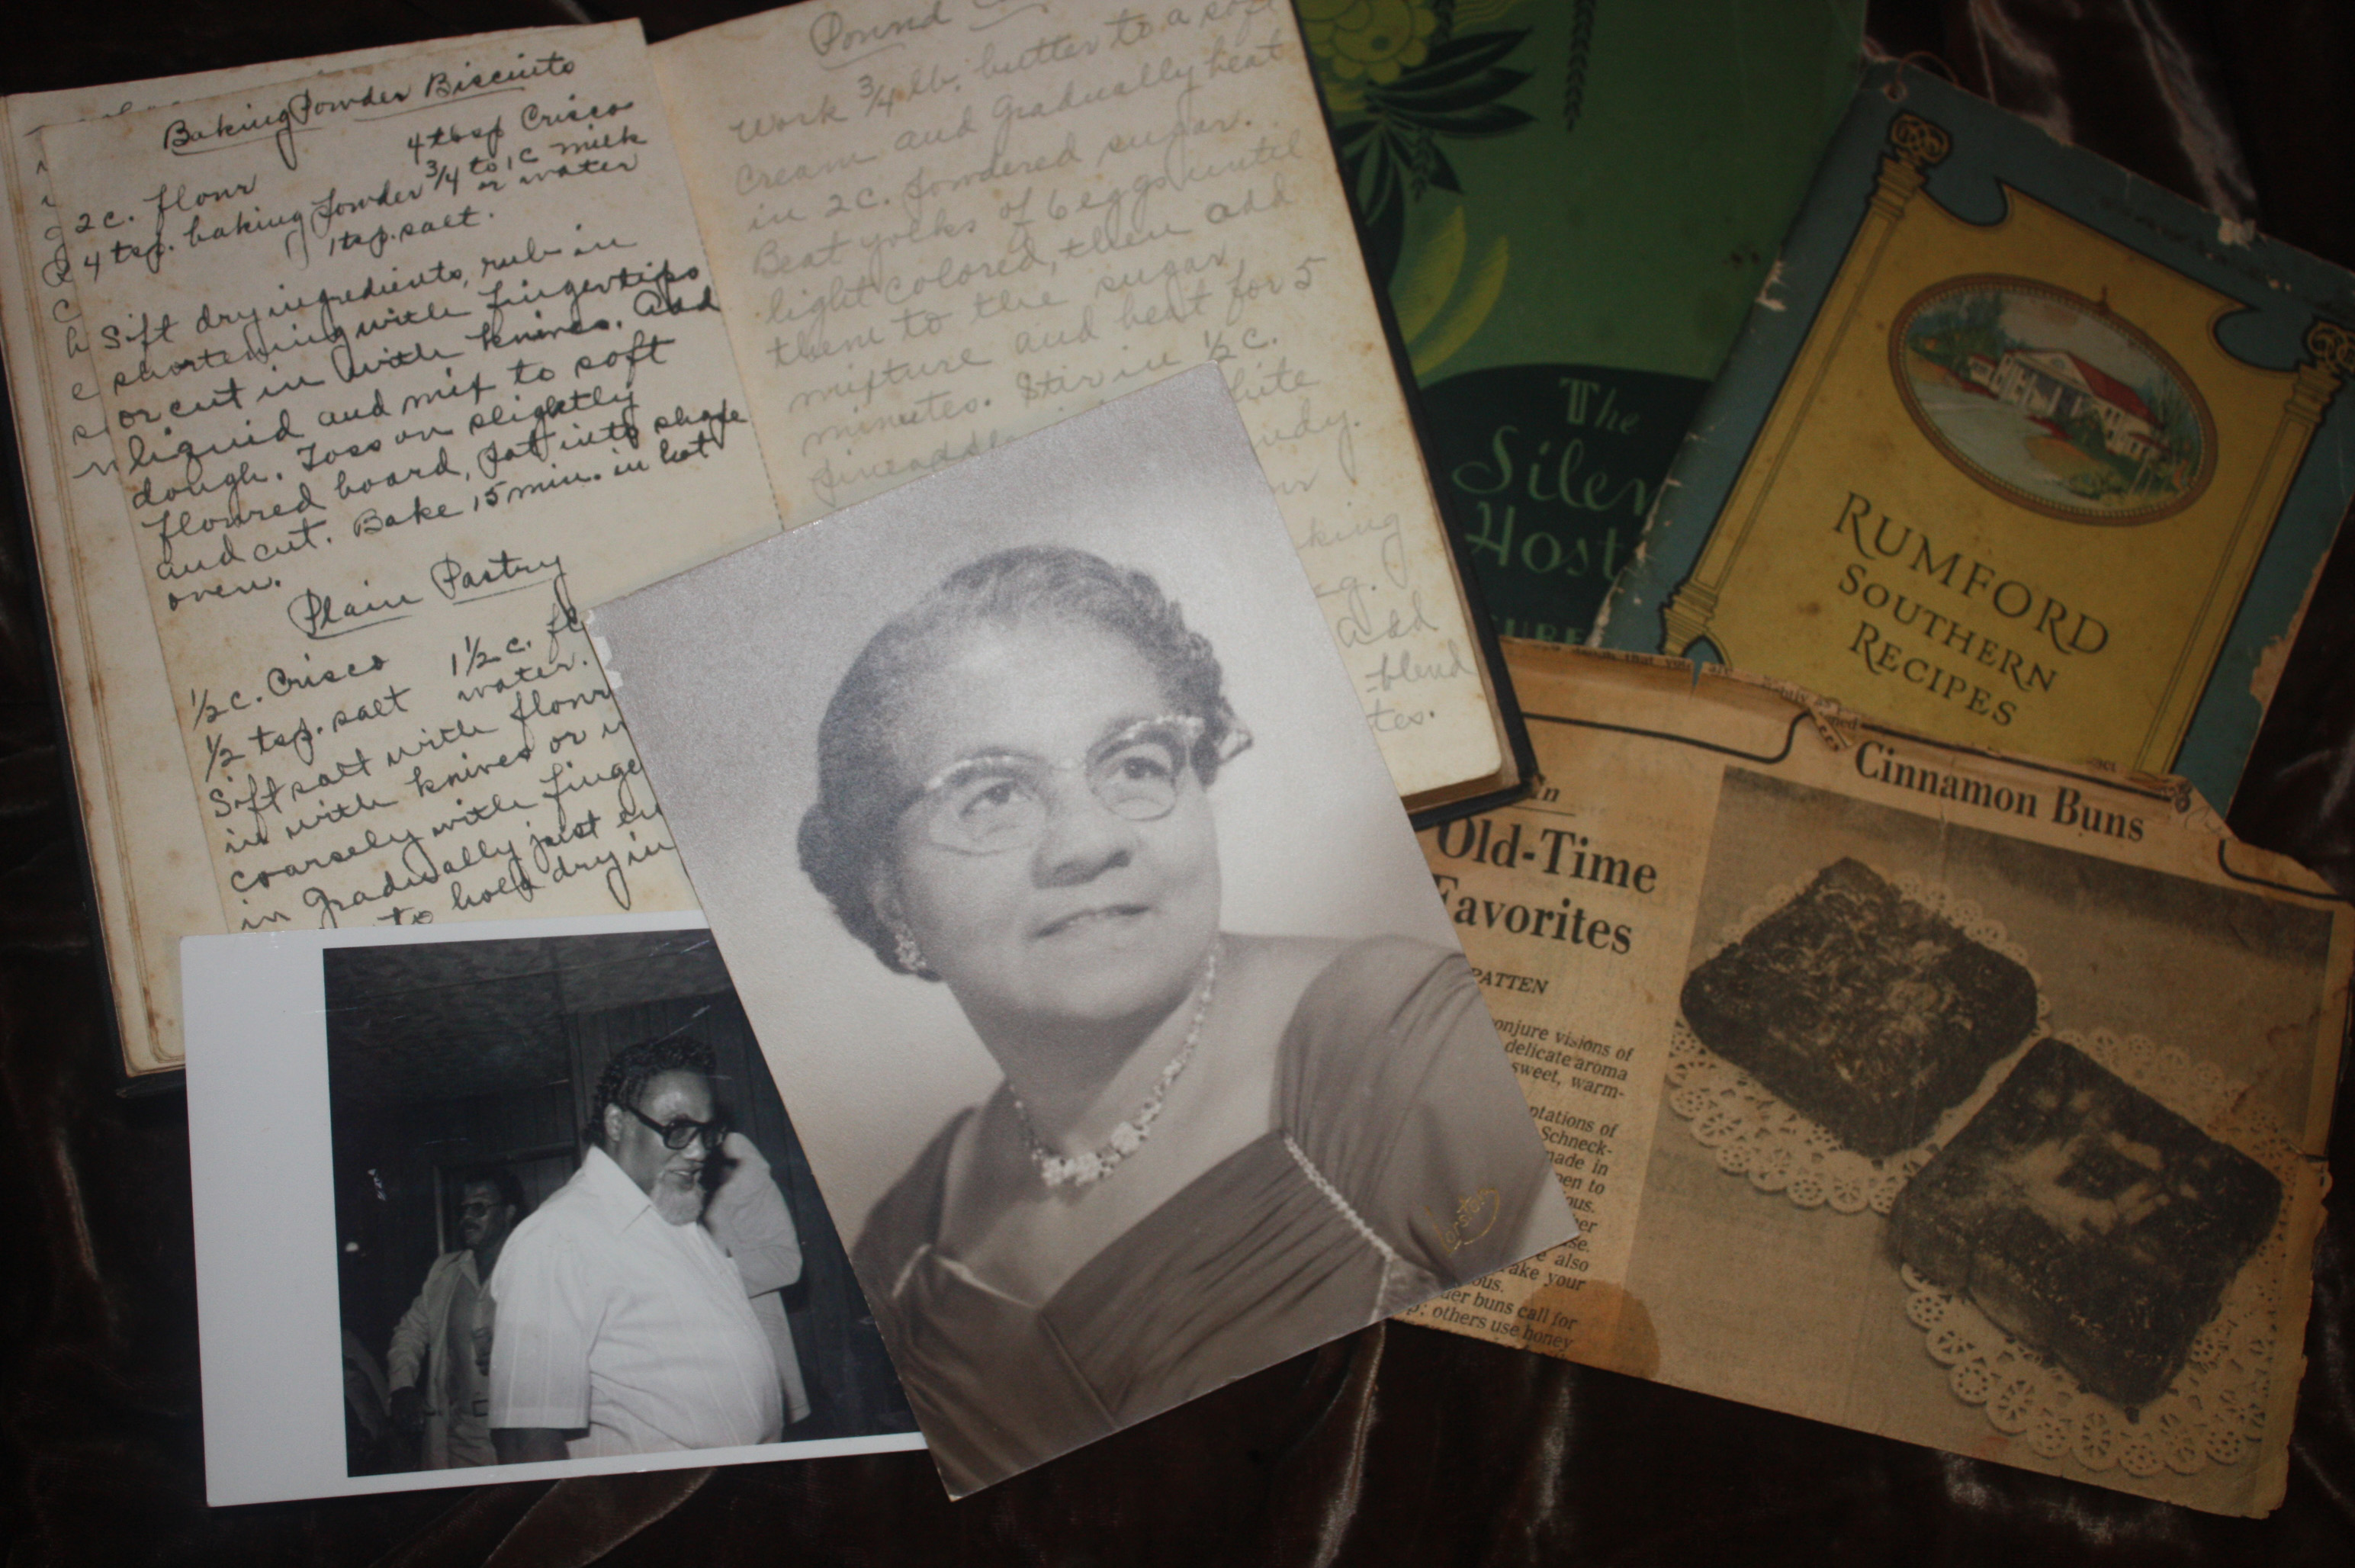 Baking Powder Biscuits
2 c. flour 4 tbsp Crisco
4 tsp. baking powder 3/4 to 1 c milk
or water
1 tsp. salt.
Sift dry ingredients, rub in
shortening with fingertips
or cut in with knives. Add
liquid and mix to soft
dough. Toss on slightly
floured board, pat into shape
and cut. Bake 15 min. in hot
oven.
Plain Pastry
1/2 c. Crisco 1 1/2 c.
1/2 tsp. salt water.
Sift salt with flour
in with knives or
coarsely with
in gradually just
to hold dry in
Pound
Work 3/4 lb. butter to a
cream and gradually beat
in 2 c. powdered sugar.
Beat yolks of 6 eggs until
light colored, then add
them to the sugar
mixture and beat for 5
minutes. Stir in 1/2 c.
Add
blend
The
Silen
Host
RUMFORD
SOUTHERN
RECIPES
Cinnamon Buns
Old-Time
Favorites
PATTEN
onjure visions of
delicate aroma
sweet, warm-
ptations of
Schneck-
made in
en to
ous.
er
se.
e also
ake your
ous.
der buns call for
p; others use honey